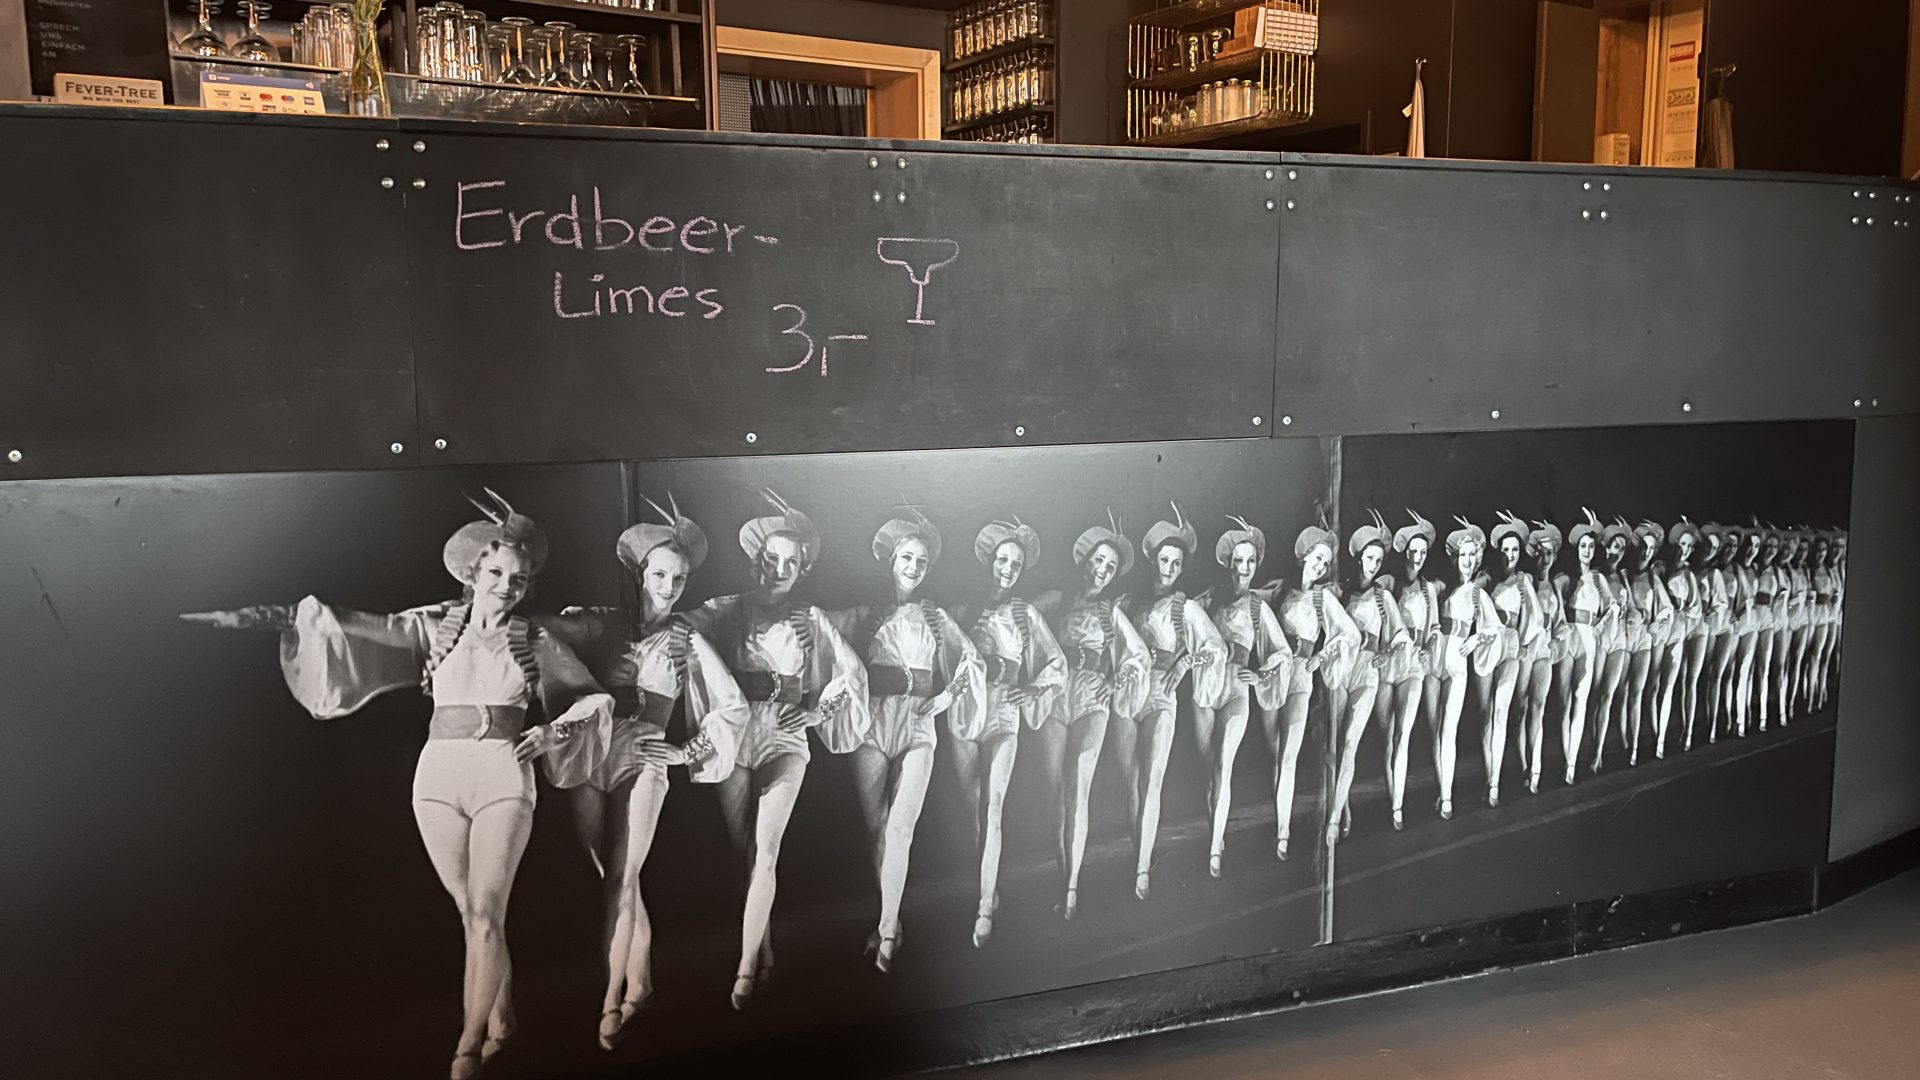 ANZUMIETEN
SPRECH
UNS
EINFACH
AN
FEVER-TREE
MIX WITH THE BEST
VISA
Erdbeer-
Limes
3,-